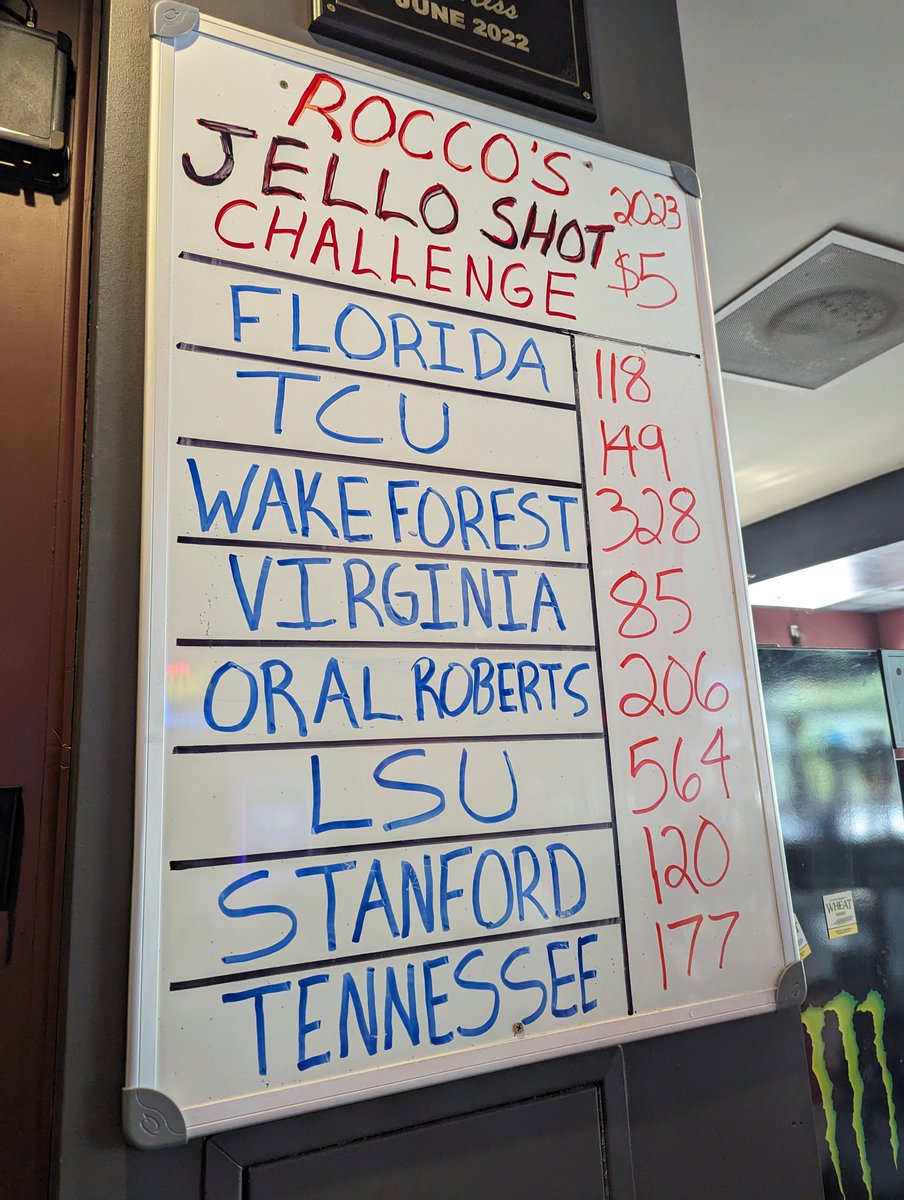 JUNE 2022
ROCCO'S
JELLO SHOT 2023
CHALLENGE $5
FLORIDA 118
TCU 149
WAKE FOREST 328
VIRGINIA 85
ORAL ROBERTS 206
LSU 564
STANFORD 120
TENNESSEE 177
WHEAT